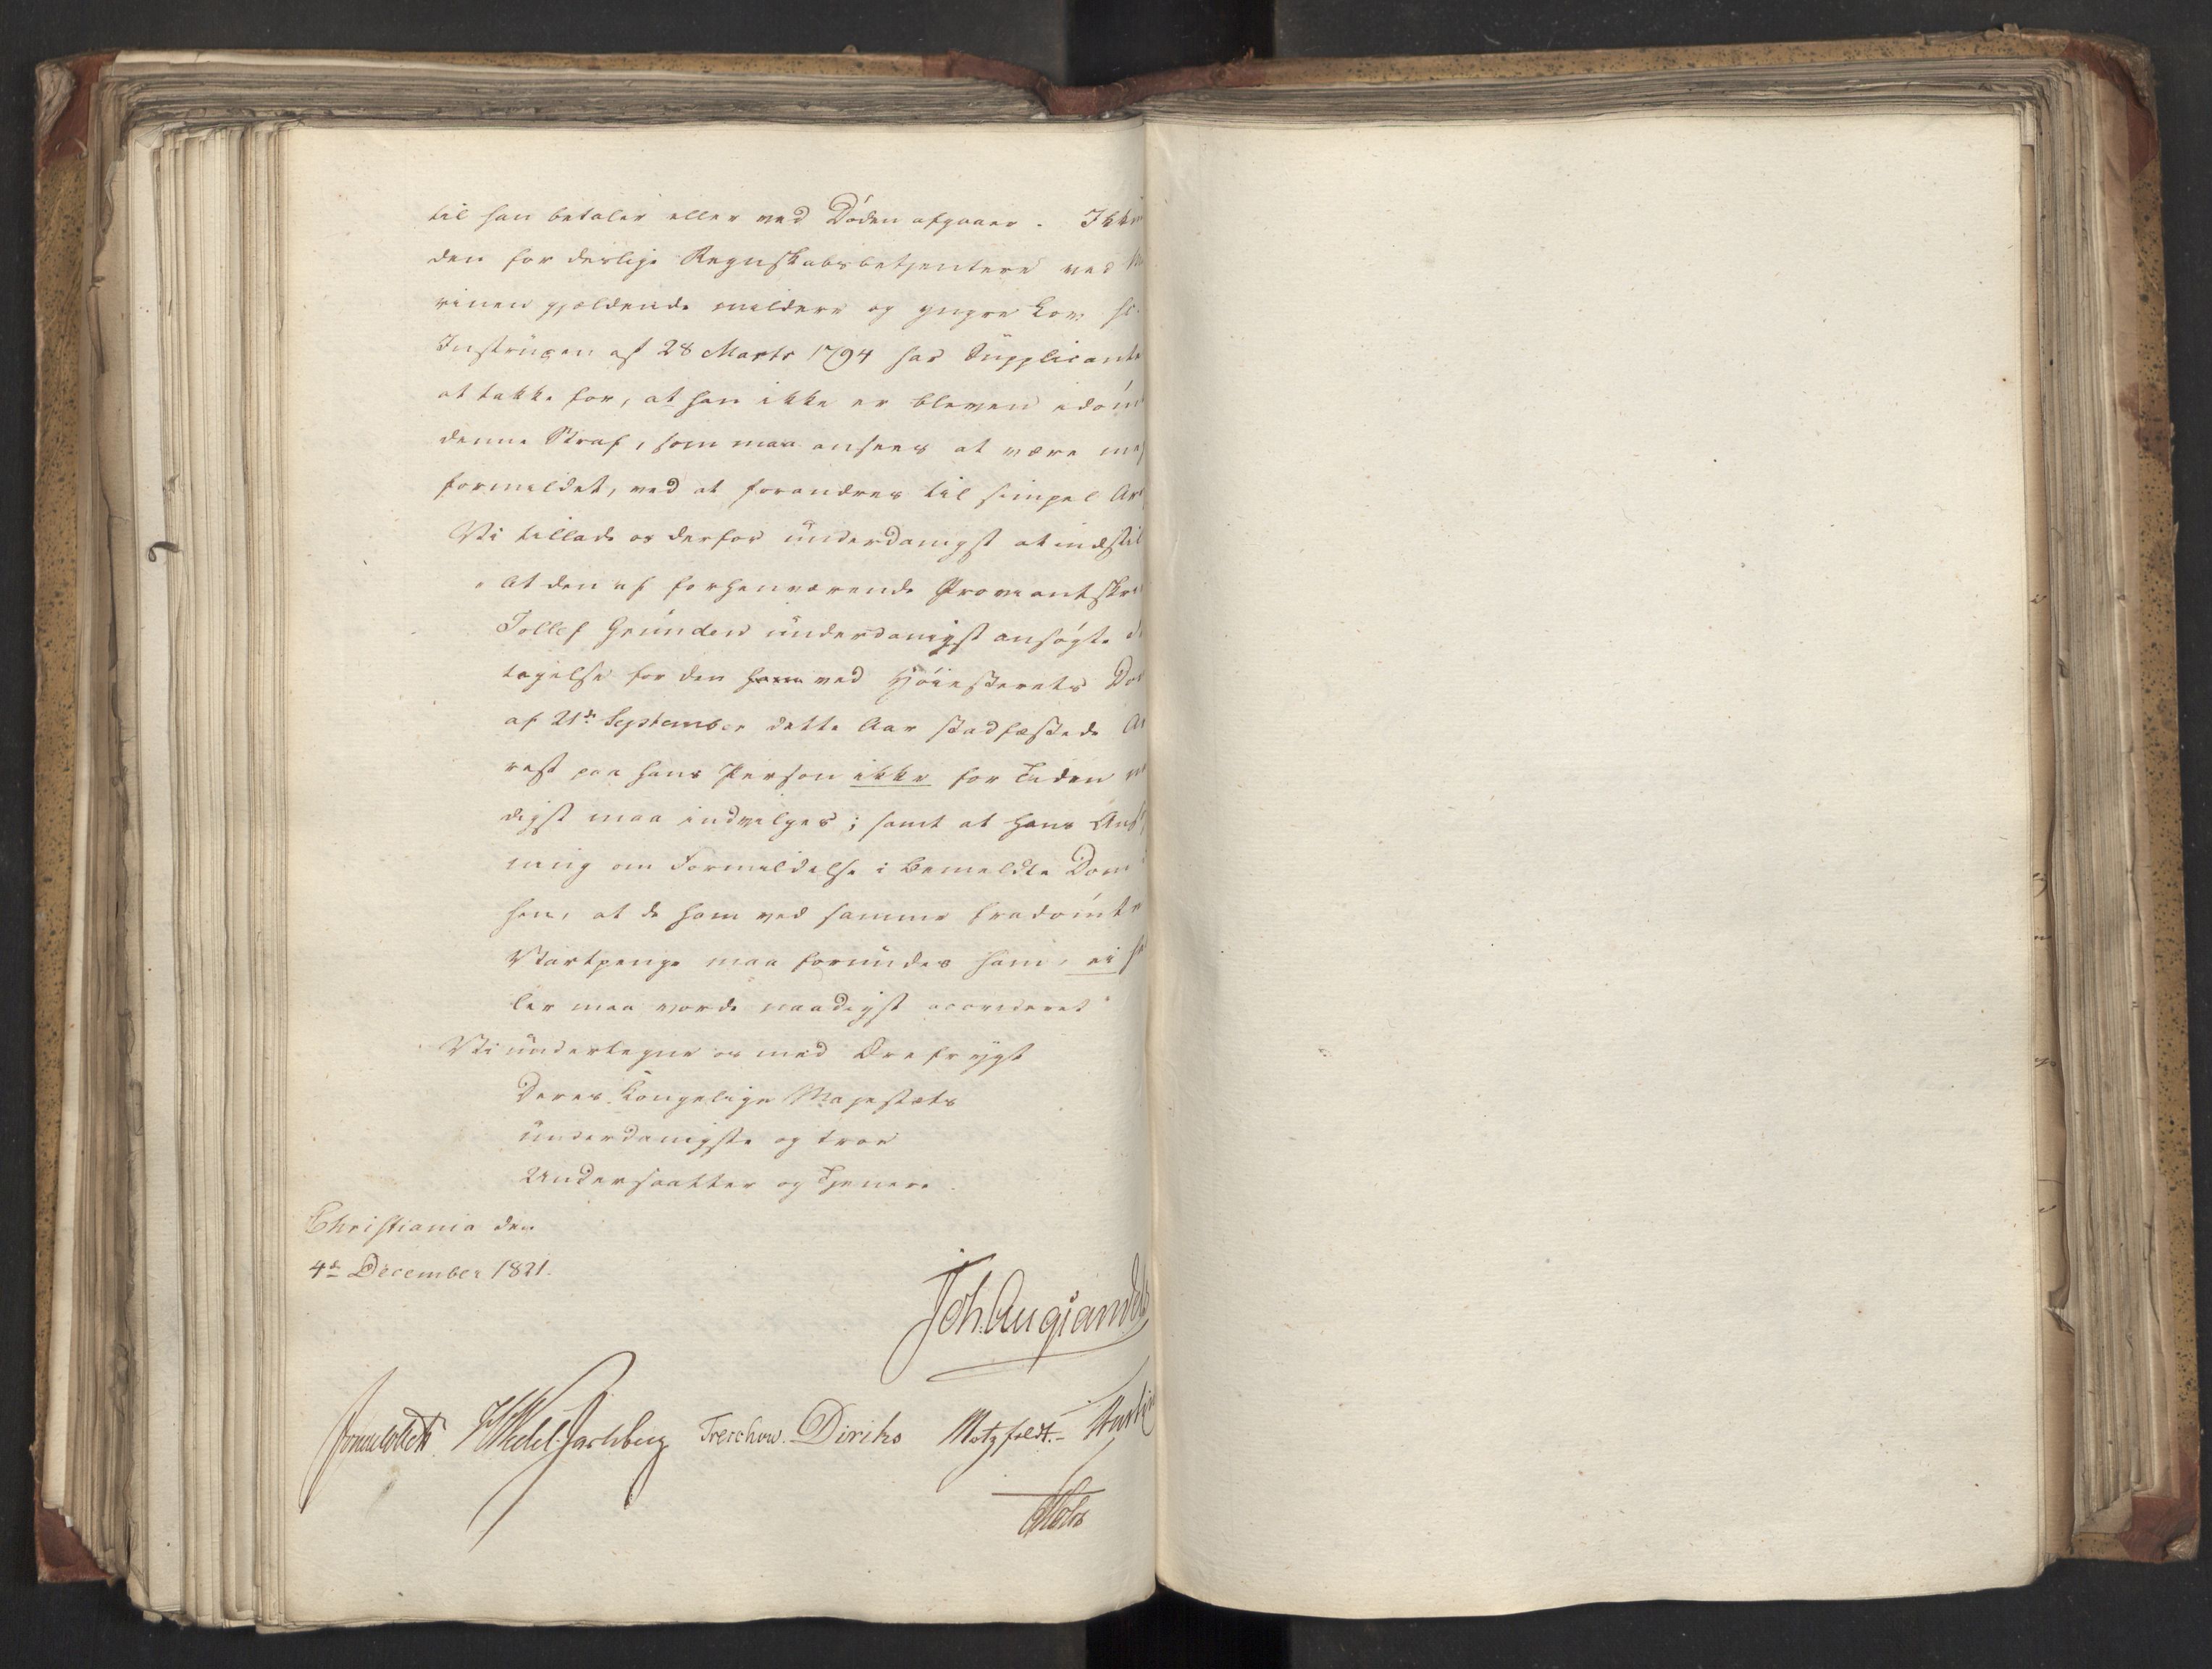 til han betaler eller ved Döden afgaaer. Ikke
den for deslige Regnskabsbetjentere ved
rinen gjældende mildere og yngre Lov
Instruxen af 28 Marts 1794 har Supplicante
at takke for, at han ikke er bleven idömt
denne Straf, som maa ansees at være
formildet, ved at forandres til simpel Ar
Vi tillade os derfor underdanigst at indstil
"At den af forhenværende Proviantskri
Tollef Gründen underdanigst ansögte
tagelse for den ham ved Höiesterets Dom
af 21de September dette Aar stadfæstede Ar
rest paa hans Person ikke for Tiden
digst maa indvilges; samt at hans Ansög
ning om Formildelse i bemeldte Dom
hen, at de ham ved samme fradömte
Vartpenge maa forundes ham, ei
ler maa vorde naadigst accorderet"
Vi undertegne os med Ærefrygt
Deres Kongelige Majestæts
underdanigste og troe
Undersaatter og Tjenere.
Christiania den
4de December 1821.
Joh. Aug Sandels
Jonas Collett. HWedel-Jarlsberg Treschow. Diriks Motzfeldt.- Fasting
Holst